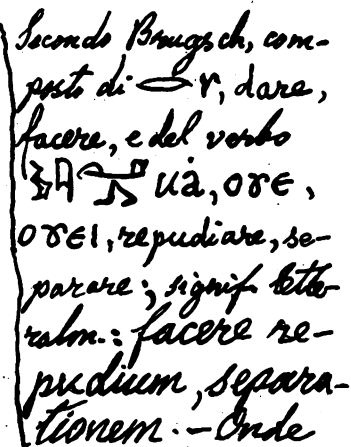 Secondo Brugsch, com-
posto di 𓂋 r, dare,
facere, e del verbo
uȧ, ⲟⲩⲉ,
ⲟⲩⲉⲓ, repudiare, se-
parare:, signif. lette-
ralm.: facere re-
pudium, separa-
tionem. – Onde